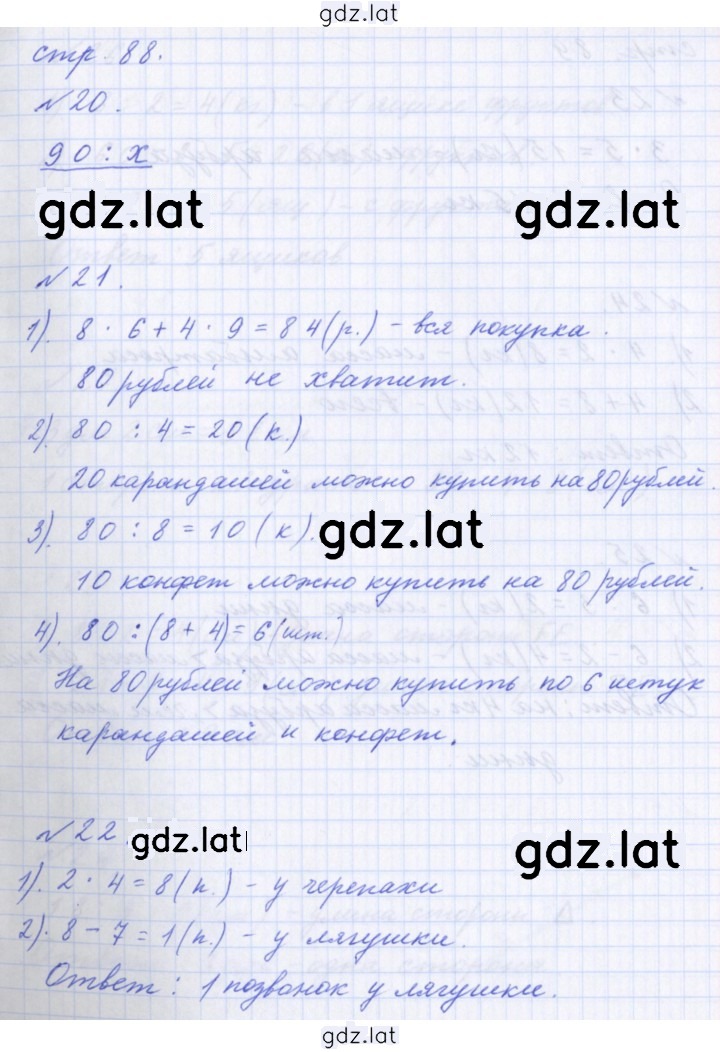 gdz.lat
стр. 88.
№20.
90 : х
gdz.lat gdz.lat
№21.
1). 8 · 6 + 4 · 9 = 84(р.) - вся покупка.
80 рублей не хватит.
2). 80 : 4 = 20(к.)
20 карандашей можно купить на 80 рублей.
3). 80 : 8 = 10(к). gdz.lat
10 конфет можно купить на 80 рублей.
4). 80 : (8 + 4) = 6(шт.)
На 80 рублей можно купить по 6 штук
карандашей и конфет.
№22 gdz.lat gdz.lat
1). 2 · 4 = 8(п.) - у черепахи
2). 8 - 7 = 1(п.) - у лягушки.
Ответ: 1 позвонок у лягушки.
gdz.lat